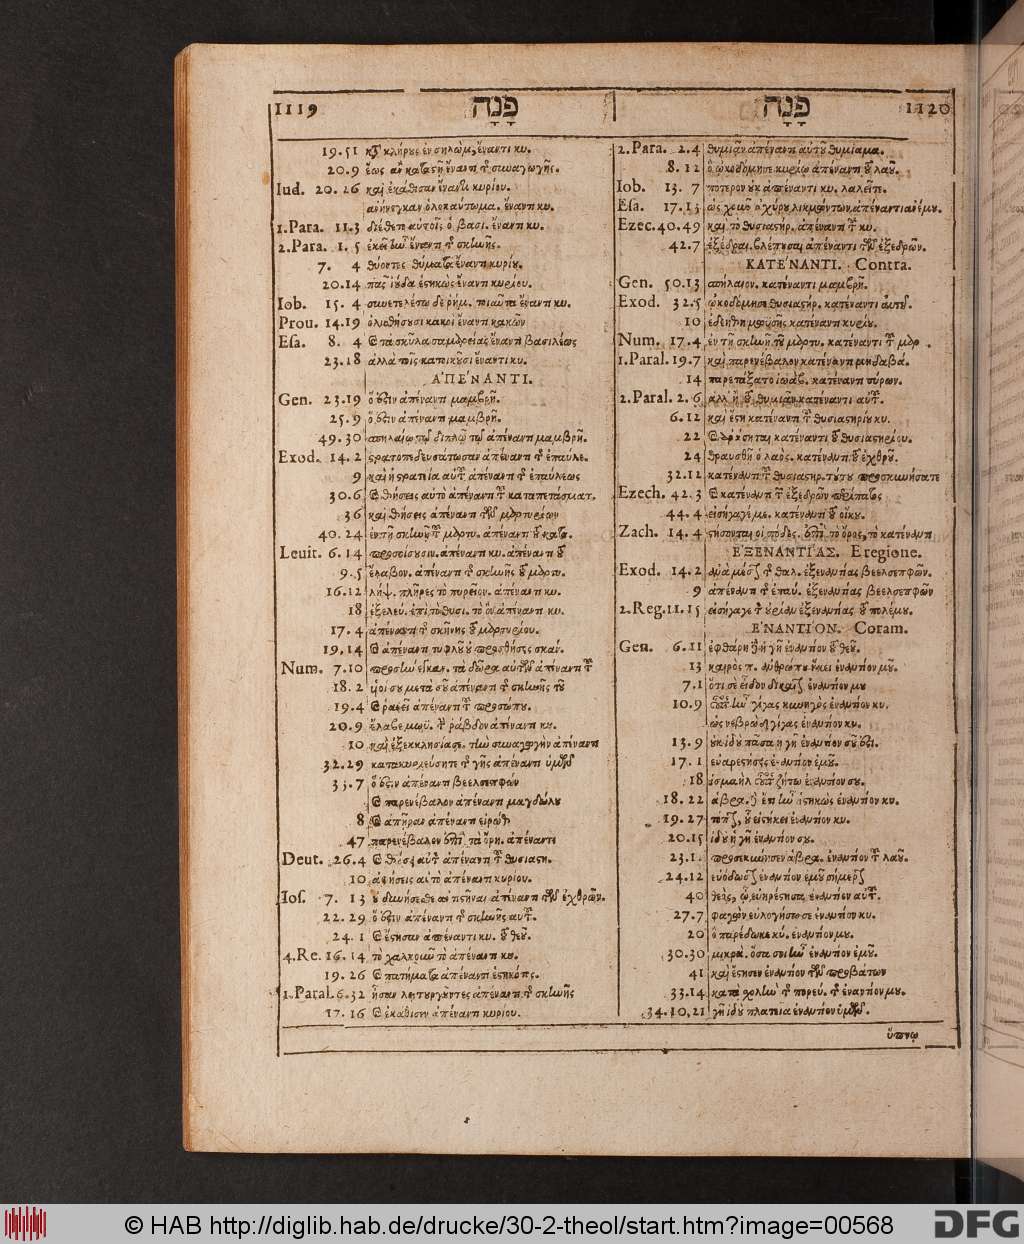 1119 פָּנָה פָּנָה 1120
19.51 κτ̃ κλήρυς ἐν σηλώμ, ἔναντι κυ.
20.9 ἕως ἂν καταστῇ ἔναντι τ̃ συναγωγῆς.
Iud. 20.26 καὶ ἐκάθισαν ἔναντι κυρίου.
ἀνήνεγκαν ὁλοκαύτωμα. ἔναντι κυ.
1.Para. 11.3 διέθετο αὐτοῖς ὁ βασι. ἔναντι κυ.
2.Para. 1.5 ἐκεῖ ἦν ἔναντι τ̃ σκηνῆς.
7. 4 θύοντες θύματα ἔναντι κυρίυ.
20.14 πᾶς ἰούδα ἑστηκὼς ἔναντι κυρίου.
Iob. 15. 4 συνετελέσω δὲ ῥήμ. τοιαῦτα ἔναντι κυ.
Prou. 14.19 ὀλισθήσουσι κακοὶ ἔναντι κακῶν
Esa. 8. 4 τὰ σκῦλα σαμαρείας ἔναντι βασιλέως
23.18 ἀλλὰ τοῖς κατοικοῦσι ἔναντι κυ.
ΑΠΕ΄ΝΑΝΤΙ.
Gen. 23.19 ὅ ἐστιν ἀπέναντι μαμβρῆ.
25.9 ὅ ἐστιν ἀπέναντι μαμβρῆ.
49.30 σπηλαίῳ τῷ διπλῷ τῷ ἀπέναντι μαμβρῆ.
Exod. 14.2 στρατοπεδευσάτωσαν ἀπέναντι τ̃ ἐπαύλε.
9 καὶ ἡ στρατιὰ αὐτ̃ ἀπέναντι τ̃ ἐπαύλεως
30.6 θήσεις αὐτὸ ἀπέναντι τ̃ καταπετάσματ.
36 καὶ θήσεις ἀπέναντι τῶν μαρτυρίων
40.24 ἐν τῇ σκηνῇ τ̃ μαρτυ. ἀπέναντι
Leuit. 6.14 προσοίσουσιν. ἀπέναντι κυ. ἀπέναντι
9.5 ἔλαβον. ἀπέναντι τ̃ σκηνῆς μαρτυ.
16.12 λήψ. πλῆρες τὸ πυρεῖον. ἀπέναντι κυ.
18 ἐξελεύ. ἐπὶ τὸ θυσι. τὸ ὂν ἀπέναντι κυ.
17.4 ἀπέναντι τ̃ σκηνῆς μαρτυρίου.
19.14 ἀπέναντι τυφλοῦ οὐ προσθήσεις σκάν.
Num. 7.10 τὰ δῶρα αὐτῶν ἀπέναντι
18.2 μετὰ σοῦ ἀπέναντι τ̃ σκηνῆς τοῦ
19.4 ῥανεῖ ἀπέναντι τ̃ προσώπυ.
20.9 ἔλαβε μωϋ. τ̃ ῥάβδον ἀπέναντι κυ.
10 καὶ ἐξεκκλησίασε. τὴν συναγωγὴν ἀπέναντι
32.29 κατακυριεύσητε τ̃ γῆς ἀπέναντι ὑμῶν
33.7 ὅ ἐστιν ἀπέναντι βεελσεπφών
παρενέβαλον ἀπέναντι μαγδώλυ
8 ἀπῆραν ἀπέναντι εἰρώθ
47 παρενέβαλον ἐπὶ τὰ ὄρη. ἀπέναντι
Deut. 26.4 αὐτ̃ ἀπέναντι τ̃ θυσιαστη.
10 ἀφήσεις αὐτὸ ἀπέναντι κυρίου.
Ios. 7. 13 οὐ δυνήσεσθε ἀντιστῆναι ἀπέναντι τῶν ἐχθρῶν.
22.29 ὅ ἐστιν ἀπέναντι τ̃ σκηνῆς αὐτ̃.
24.1 ἔστησαν ἀπέναντι κυ. θεοῦ.
4.Re. 16.14 τὸ χαλκοῦν τὸ ἀπέναντι κυ.
19.26 πατήματα ἀπέναντι ἑστηκότς.
1.Paral. 6.32 ἦσαν λειτυργῦντες ἀπέναντι τ̃ σκηνῆς
17.16 ἐκάθισεν ἀπέναντι κυρίου.
2.Para. 2.4 θυμιᾶν ἀπέναντι αὐτοῦ θυμίαμα.
8.12 ὃ ᾠκοδόμησε κυρίῳ ἀπέναντι λαοῦ.
Iob. 13. 7 πότερον ὐκ ἀπέναντι κυ. λαλεῖτε.
Esa. 17.13 ὡς χνοῦν ἀχύρου λικμώντων ἀπέναντι ἀνέμου.
Ezec. 40.49 καὶ τὸ θυσιαστήρ. ἀπέναντι τ̃ κυ.
42.7 ἐξέδραι. βλέπουσαι ἀπέναντι τῶν ἐξεδρῶν.
ΚΑΤΕ΄ΝΑΝΤΙ. Contra.
Gen. 50.13 σπήλαιον. κατέναντι μαμβρῆ.
Exod. 32.5 ᾠκοδόμησε θυσιαστήρ. κατέναντι αὐτοῦ.
10 ἐδεήθη μωϋσῆς κατέναντι κυρίυ.
Num. 17.4 ἐν τῇ σκηνῇ τοῦ μαρτυ. κατέναντι τ̃ μαρ.
1.Paral. 19.7 καὶ παρενέβαλον κατέναντι μηδαβά.
14 παρετάξατο ἰωάβ. κατέναντι σύρων.
2.Paral. 2.6 ἀλλ’ ἢ θυμιᾶν κατέναντι αὐτ̃.
6.12 καὶ ἔστη κατέναντι τ̃ θυσιαστηρίυ κυ.
22 ἀράσηται κατέναντι θυσιαστηρίου.
24 θραυσθῇ ὁ λαός. κατέναντι ἐχθροῦ.
32.12 κατέναντι τ̃ θυσιαστηρ. τύτυ προσκυνήσατε
Ezech. 42.3 κατέναντι τ̃ ἐξεδρῶν
44.4 εἰσήγαγέ με. κατέναντι οἴκυ.
Zach. 14.4 στήσονται οἱ πόδες. ἐπὶ τὸ ὄρος, τὸ κατέναντι
ΕΞΕΝΑΝΤΙ΄ΑΣ. E regione.
Exod. 14.2 ἀνὰ μέσον τ̃ θαλ. ἐξεναντίας βεελσεπφῶν.
9 ἀπέναντι τ̃ ἐπαύ. ἐξεναντίας βεελσεπφῶν
2.Reg. 11.15 εἰσάγαγε τ̃ οὐρίαν ἐξεναντίας πολέμυ.
ΕΝΑΝΤΙ΄ΟΝ. Coram.
Gen. 6.11 ἐφθάρη ἡ γῆ ἐναντίον θεοῦ.
13 καιρὸς π. ἀνθρώπυ ἥκει ἐναντίον μῦ.
7.1 ὅτι σὲ εἶδον δίκαιον ἐναντίον μυ
10.9 οὗτος ἦν γίγας κυνηγὸς ἐναντίον κυ.
ὡς νεβρὼδ γίγας ἐναντίον κυ.
13.9 ὐκ ἰδοὺ πᾶσα ἡ γῆ ἐναντίον σοῦ ἐστι.
17.1 εὐαρέστει ἐναντίον ἐμοῦ.
18 ἰσμαὴλ οὗτος ζήτω ἐναντίον σου.
18.22 ἀβρα. ἔτι ἦν ἑστηκὼς ἐναντίον κυ.
19.27 οὗ εἱστήκει ἐναντίον κυ.
20.15 ἰδοὺ ἡ γῆ ἐναντίον συ.
23.1. προσεκύνησεν ἀβρα. ἐναντίον τ̃ λαοῦ.
24.12 εὐόδωσον ἐναντίον ἐμοῦ σήμερον
40 θεὸς, ᾧ εὐηρέστησα ἐναντίον αὐτ̃.
27.7 φαγὼν εὐλογήσω σε ἐναντίον κυ.
20 ὃ παρέδωκε κύ. ἐναντίον μυ.
30.30 μικρὰ. ὅσα σοι ἦν ἐναντίον ἐμοῦ.
41 καὶ ἔστησεν ἐναντίον τῶν προβάτων
33.14 κατὰ σχολὴν τ̃ πορεύ. τ̃ ἐναντίον μυ.
34.10,21 γῆ ἰδοὺ πλατεῖα ἐναντίον ὑμῶν.
ὕπνῳ
© HAB http://diglib.hab.de/drucke/30-2-theol/start.htm?image=00568 DFG